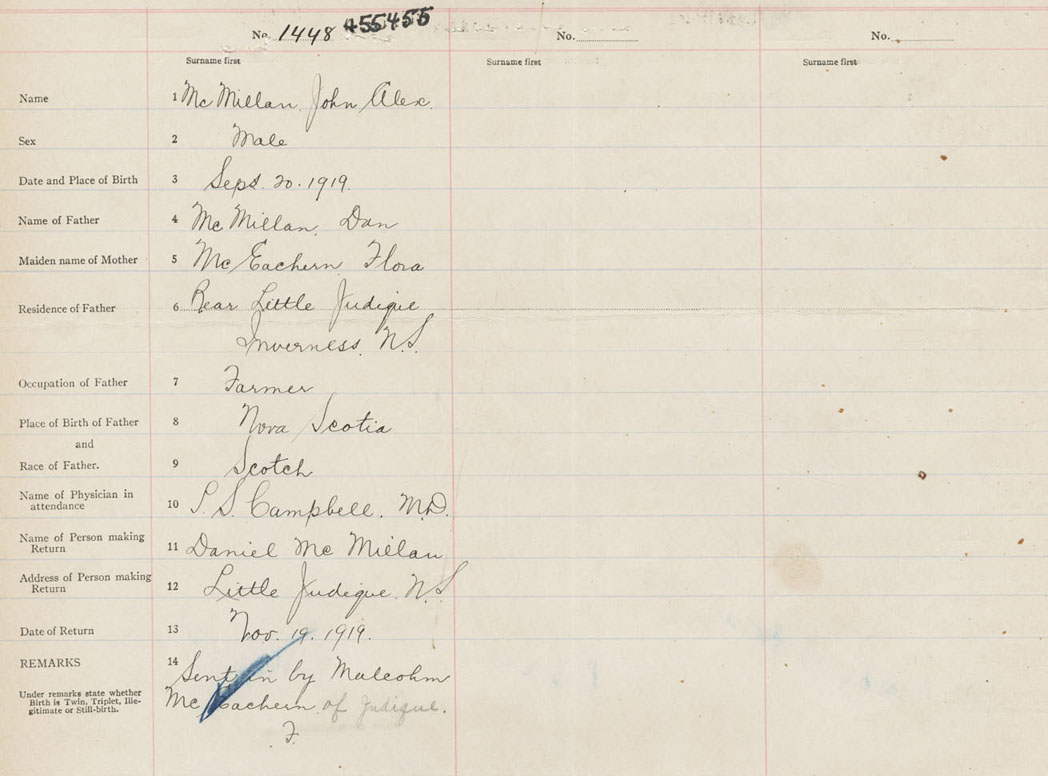 No. 1448 455455 No. No.
Surname first Surname first Surname first
Name 1 McMillan John Alex.
Sex 2 Male
Date and Place of Birth 3 Sept. 20. 1919.
Name of Father 4 McMillan, Dan
Maiden name of Mother 5 McEachern Flora
Residence of Father 6 Rear Little Judique
Inverness, N.S.
Occupation of Father 7 Farmer
Place of Birth of Father 8 Nova Scotia
and
Race of Father. 9 Scotch
Name of Physician in
attendance 10 P. S. Campbell. M.D.
Name of Person making
Return 11 Daniel McMillan
Address of Person making
Return 12 Little Judique. N.S
Date of Return 13 Nov. 19. 1919.
REMARKS 14 Sent in by Malcohm
McEachern of Judique.
Under remarks state whether
Birth is Twin, Triplet, Ille-
gitimate or Still-birth.
F.